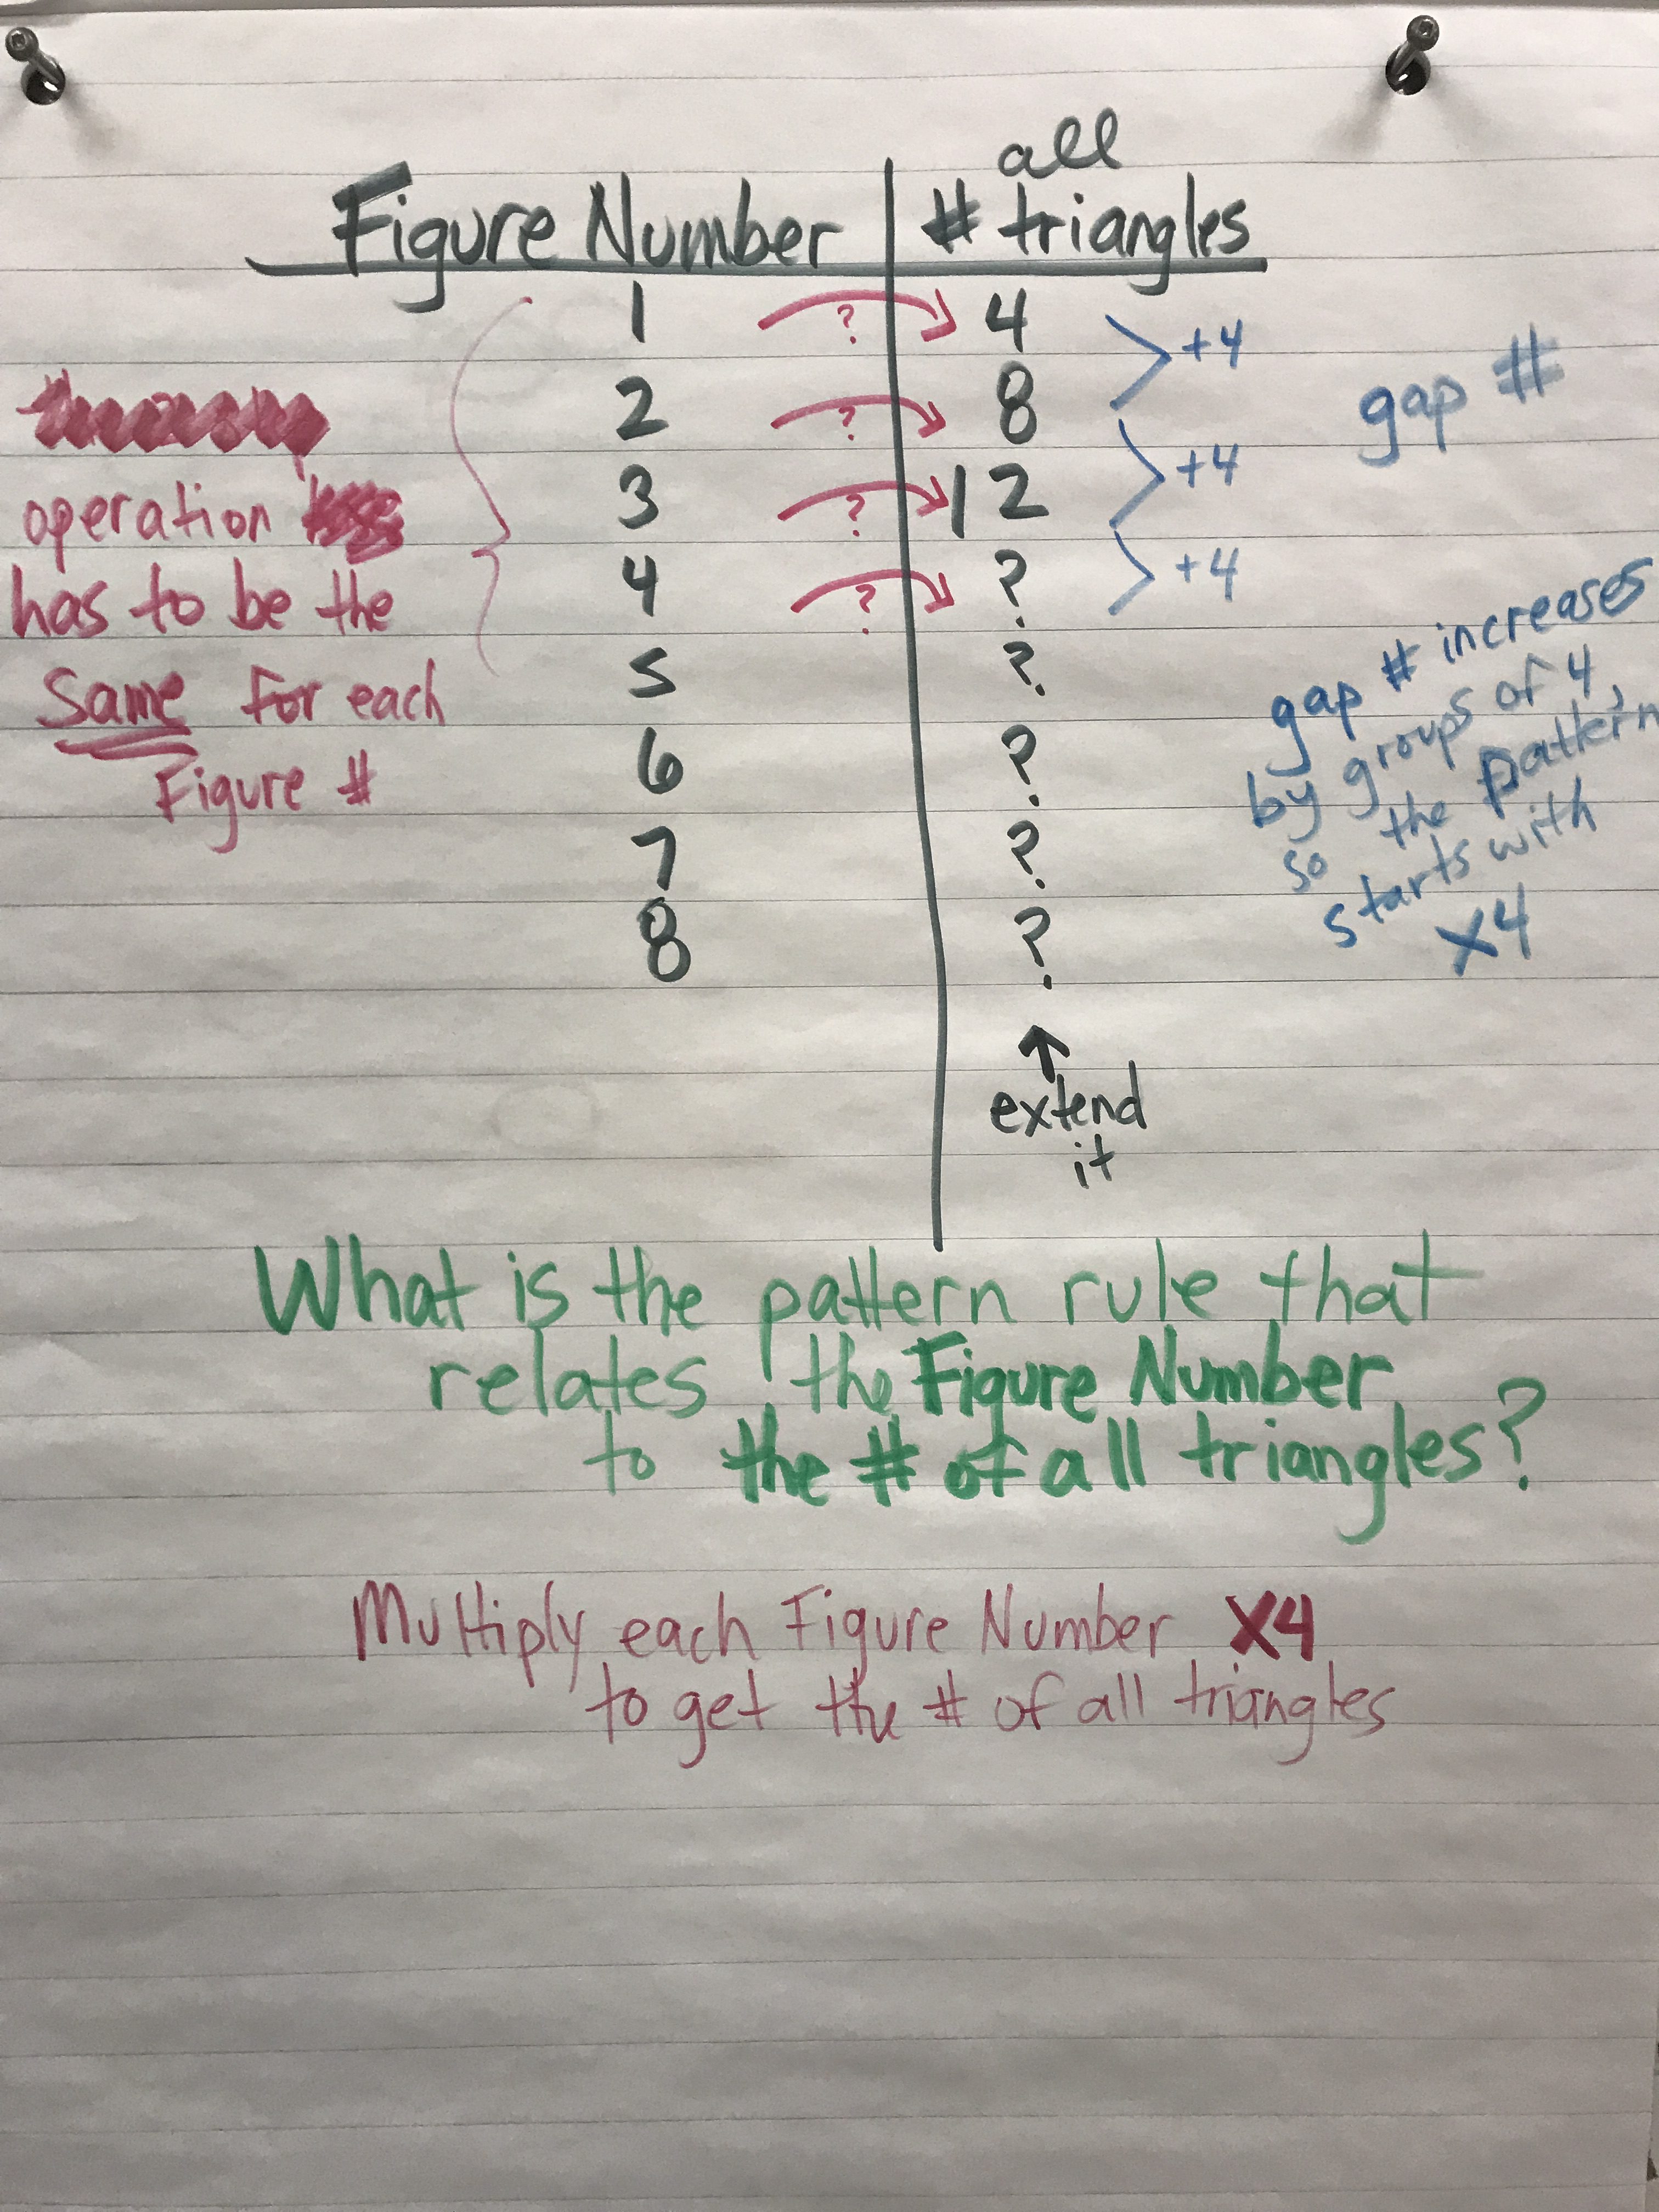 all
Figure Number # triangles
1 ? 4 +4
2 ? 8 +4
3 ? 12 +4
4 ? ?
5 ?
6 ?
7 ?
8 ?
gap #
operation
has to be the
same for each
Figure #
gap # increases
by groups of 4,
so the pattern
starts with
x4
↑
extend
it
What is the pattern rule that
relates the Figure Number
to the # of all triangles?
Multiply each Figure Number X4
to get the # of all triangles